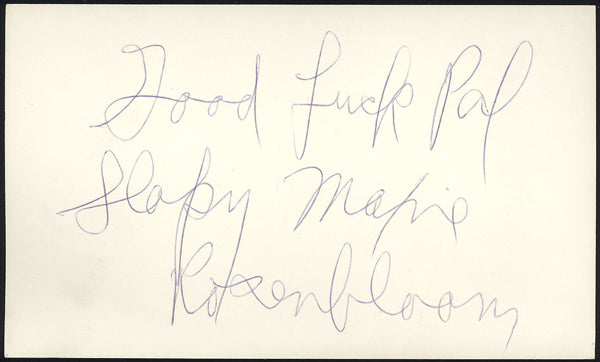 Good Luck Pal
Slapsy Maxie
Rosenbloom